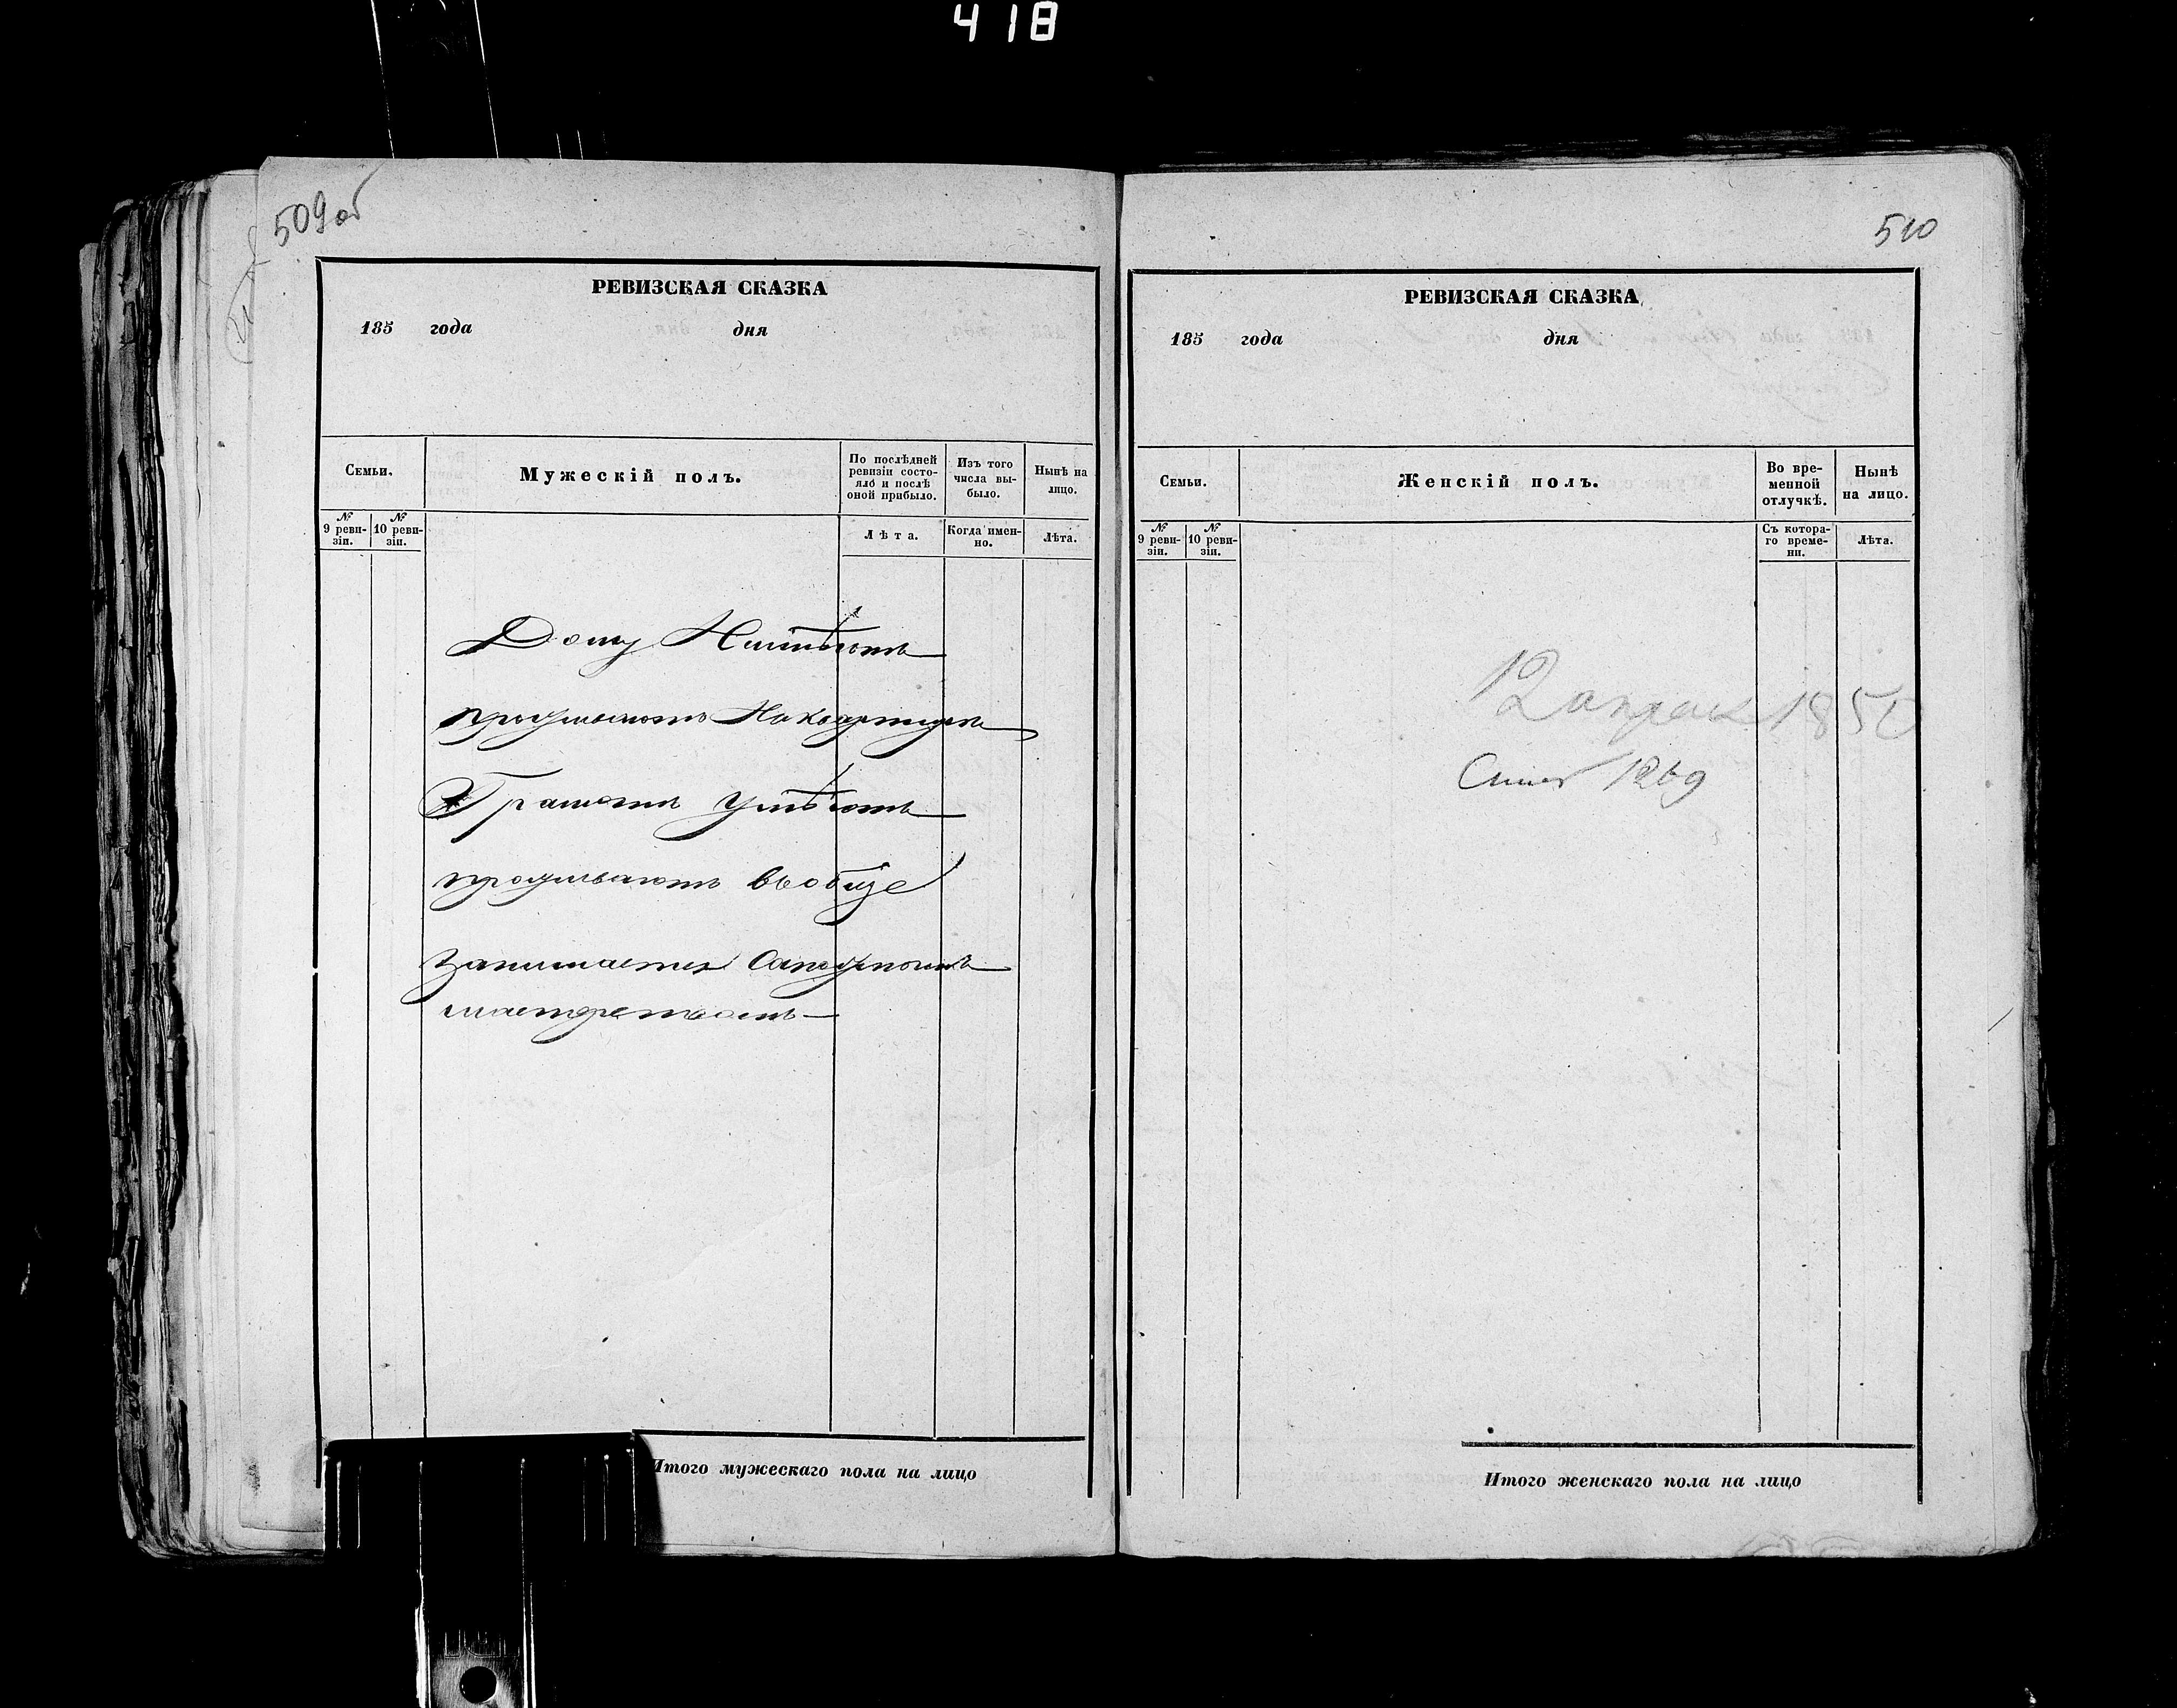 418
509об
РЕВИЗСКАЯ СКАЗКА
185 года дня
Семьи.
Мужескій полъ.
По послѣдней ревизіи состояло и послѣ оной прибыло.
Изъ того числа выбыло.
Нынѣ на лицо.
№ 9 ревизіи.
№ 10 ревизіи.
Лѣта.
Когда именно.
Лѣта.
Дому Неимѣютъ
проживаютъ Наквартире
Грамотѣ умѣютъ
проживаютъ вообще
Занимается Сапожнымъ
мастерствомъ
Итого мужескаго пола на лицо
510
РЕВИЗСКАЯ СКАЗКА
185 года дня
Семьи.
Женскій полъ.
Во временной отлучкѣ.
Нынѣ на лицо.
№ 9 ревизіи.
№ 10 ревизіи.
Съ котораго времени.
Лѣта.
12 апреля 185
1269
Итого женскаго пола на лицо